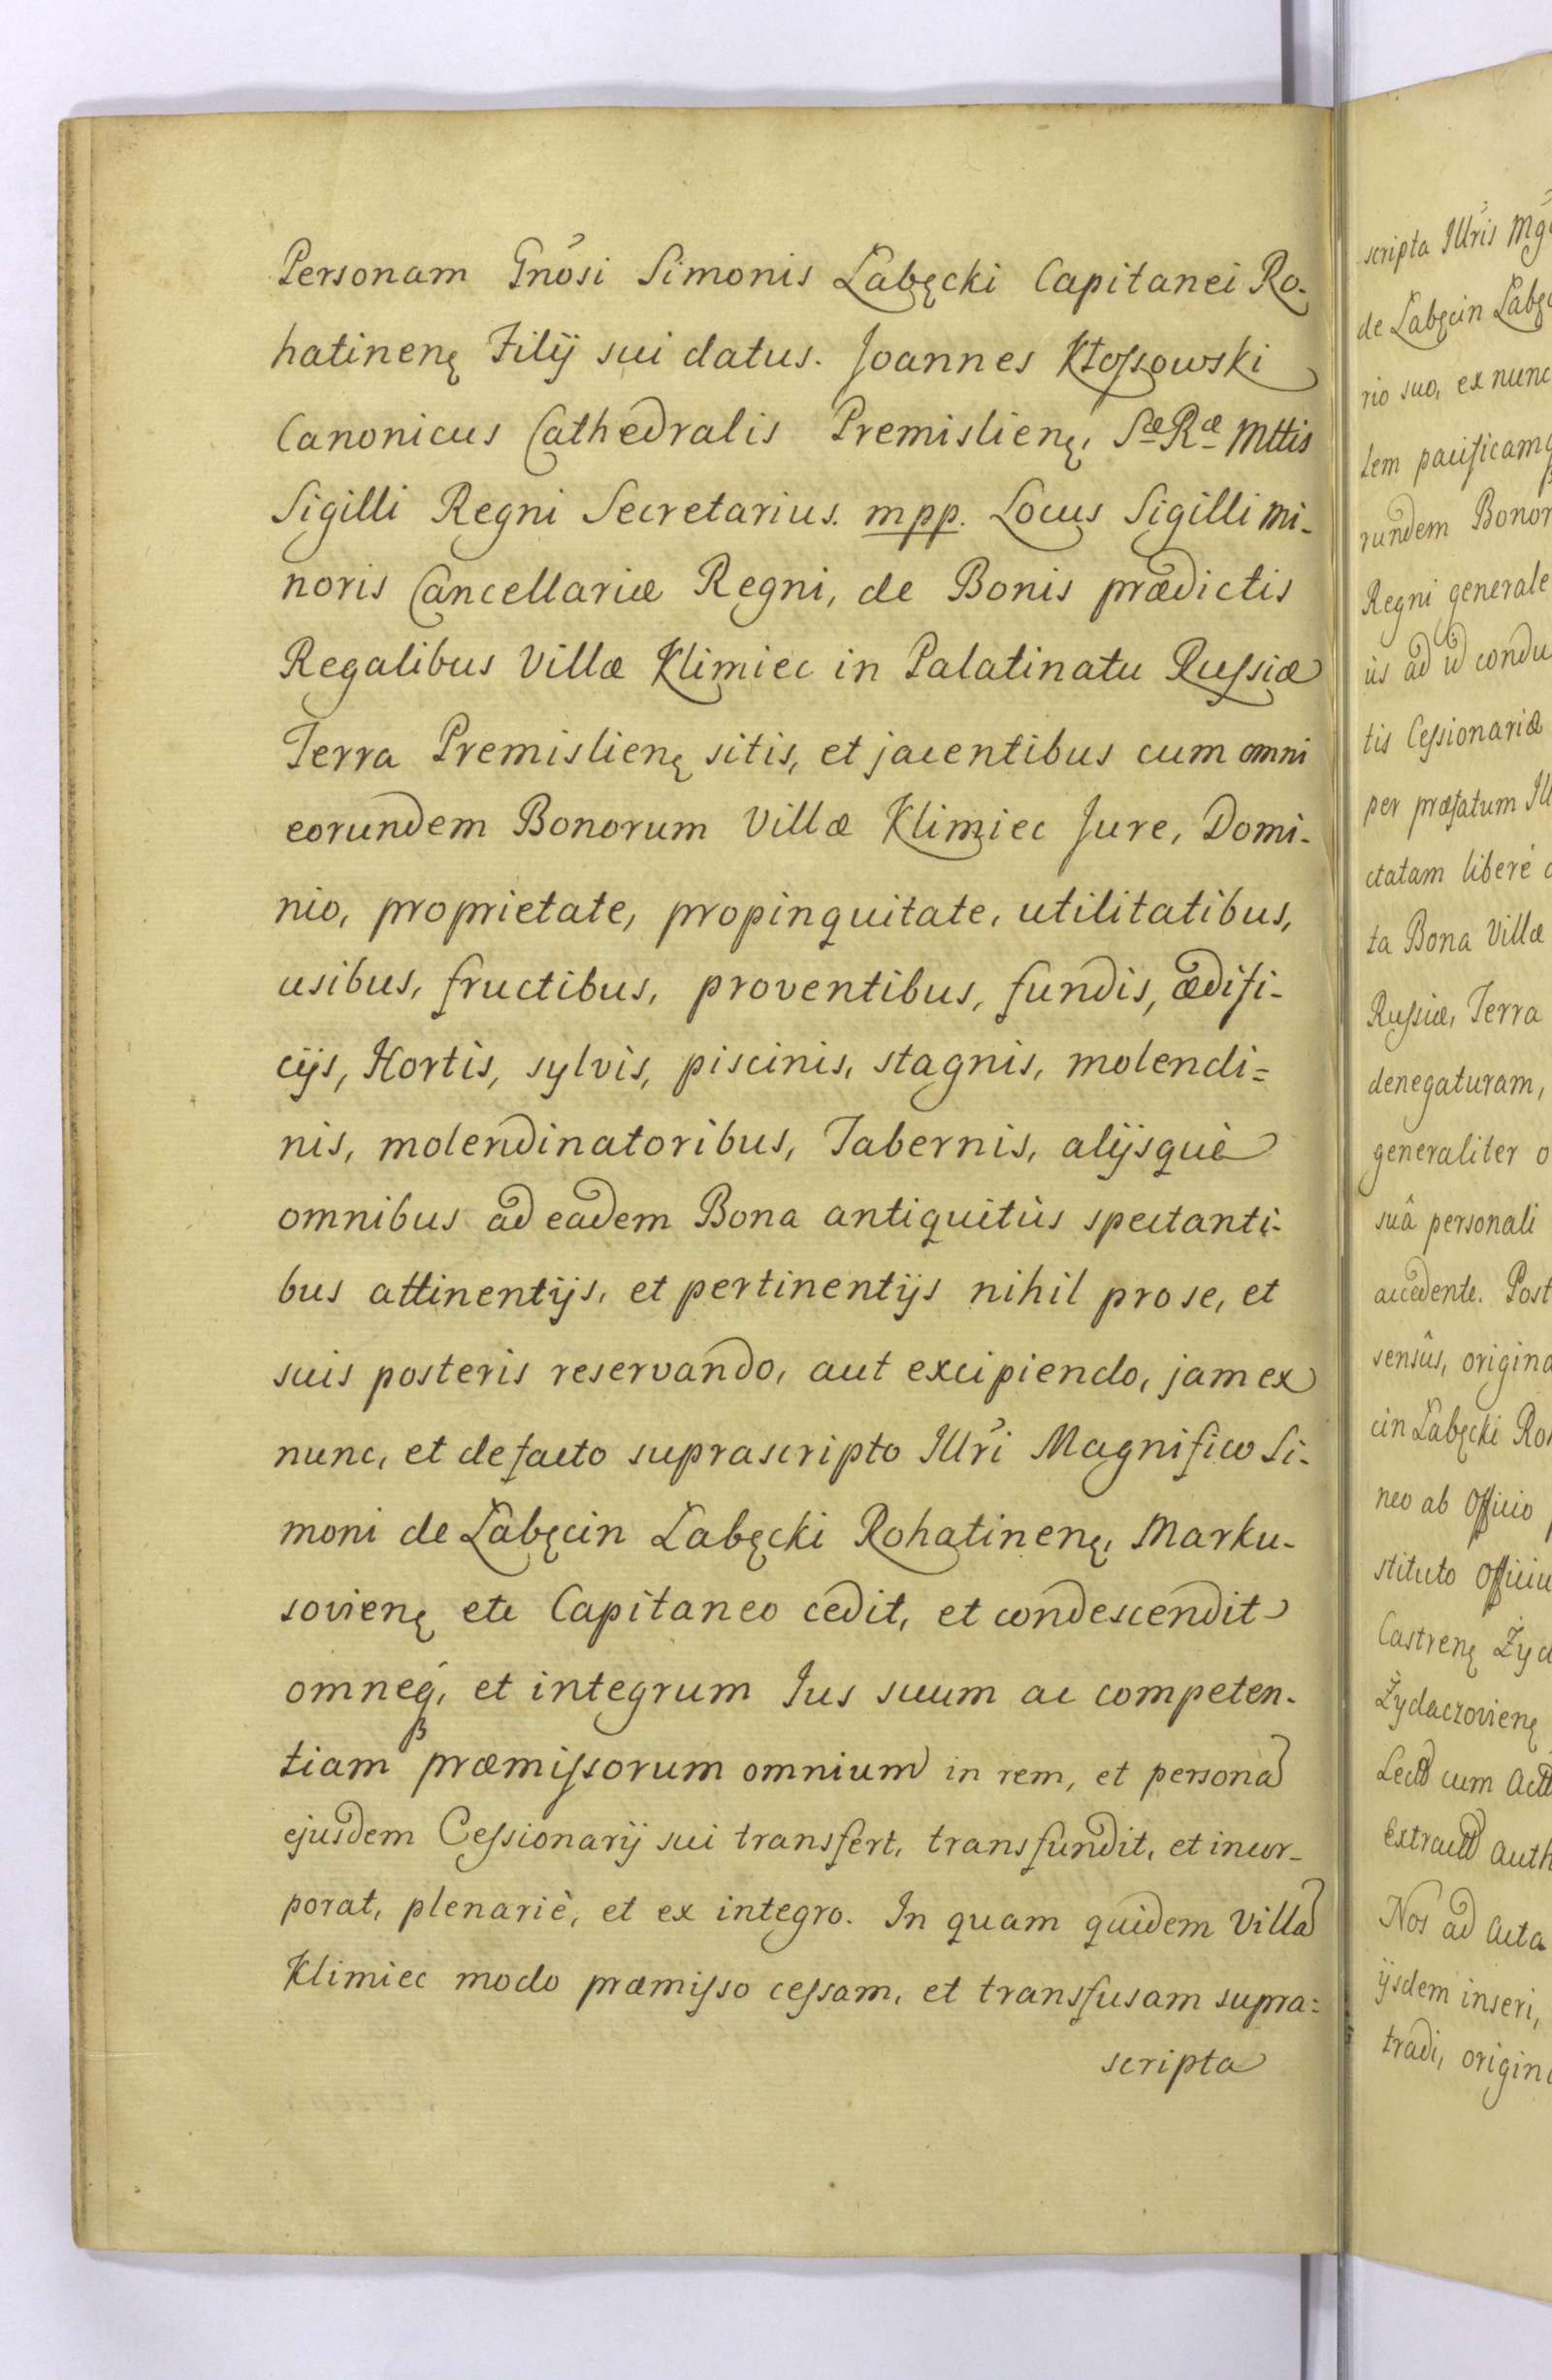 Personam Gnosi Simonis Łabęcki Capitanei Ro-
hatinenę Filij sui datus. Joannes Kłossowski
Canonicus Cathedralis Premislienę, Sæ Ræ Mttis
Sigilli Regni Secretarius. mpp. Locus Sigilli mi-
noris Cancellariæ Regni, de Bonis prædictis
Regalibus Villæ Klimiec in Palatinatu Russiæ
Terra Premislienę sitis, et jacentibus cum omni
eorundem Bonorum Villæ Klimiec Jure, Domi-
nio, proprietate, propinquitate, utilitatibus,
usibus, fructibus, proventibus, fundis, ædifi-
cijs, Hortis, sylvis, piscinis, stagnis, molendi=
nis, molendinatoribus, Tabernis, alijsquè
omnibus ad eadem Bona antiquitùs spectanti-
bus attinentijs, et pertinentijs nihil pro se, et
suis posteris reservando, aut excipiendo, jam ex
nunc, et de facto suprascripto Illri Magnifico Si-
moni de Łabęcin Łabęcki Rohatinenę, Marku-
sovienę etc Capitaneo cedit, et condescendit
omneq, et integrum Jus suum ac competen-
tiam præmissorum omnium in rem, et persona
ejusdem Cessionarij sui transfert, transfundit, et incor-
porat, plenariè, et ex integro. In quam quidem Villa
Klimiec modo præmisso cessam, et transfusam supra=
scripta
scripta Illris Mg
de Łabęcin Łabę
rio suo, ex nunc
lem pacificamq
rundem Bonor
Regni generale
ùs ad id condu
tis Cessionariæ
per præfatum Ill
ctatam liberè
ta Bona Villæ
Russiæ, Terra
denegaturam,
generaliter o
suâ personali
accedente. Post
sensûs, origina
cin Łabęcki Ro
neo ab Officio
stituto Officiu
Castrenę Żyd
Żydaczovienę
Lect cum Act
Extract auth
Nos ad Acta
ijsdem inseri,
tradi, origin